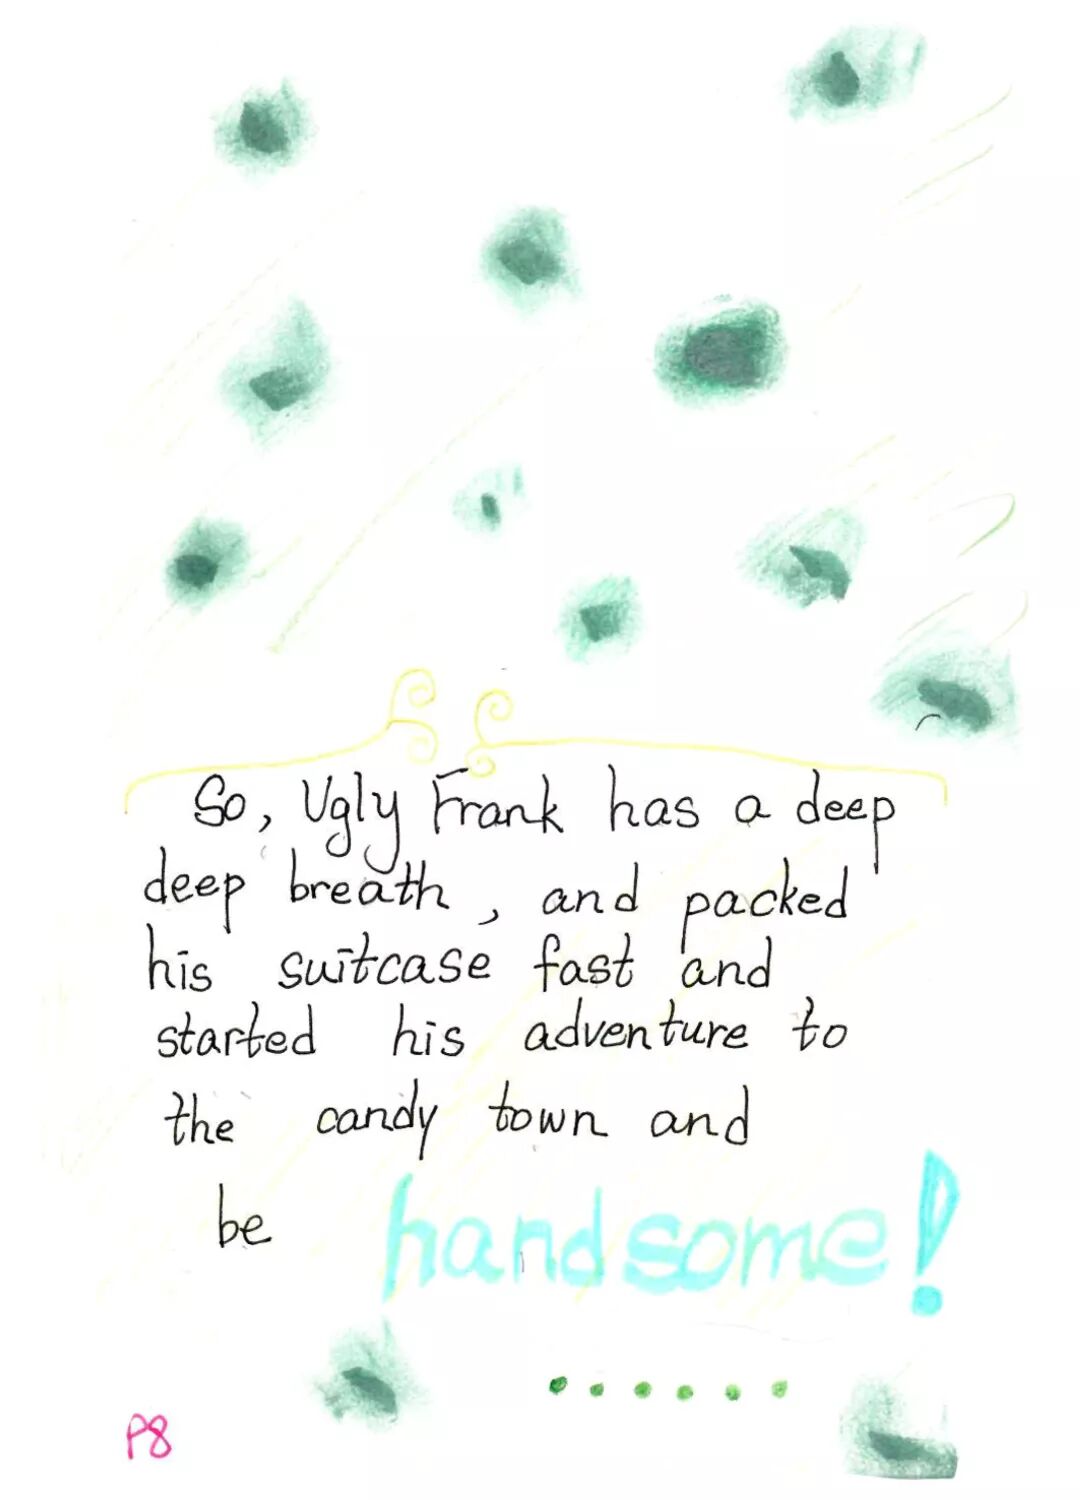 So, Ugly Frank has a deep
deep breath, and packed
his suitcase fast and
started his adventure to
the candy town and
be handsome!
......
P8